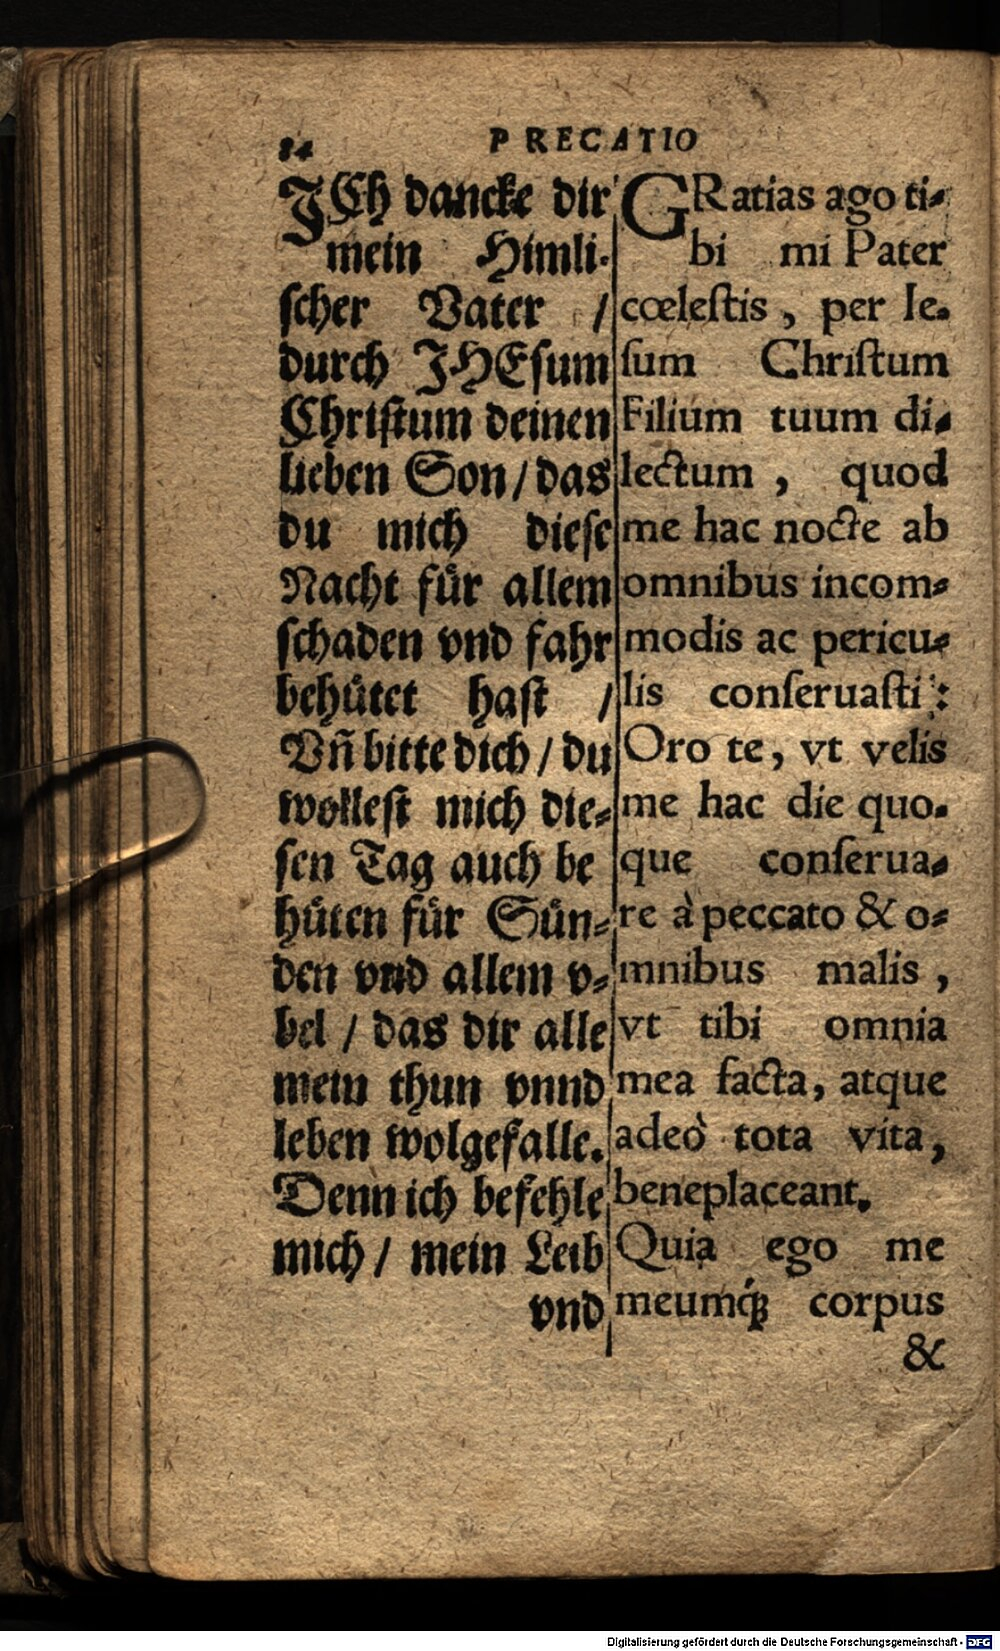 84
PRECATIO
JCh dancke dir
mein Himli-
ſcher Vater /
durch JHEſum
Chriſtum deinen
lieben Son / das
du mich dieſe
Nacht fuͤr allem
ſchaden vnd fahr
behuͤtet haſt /
Vñ bitte dich / du
wolleſt mich die-
ſen Tag auch be
huͤten fuͤr Suͤn-
den vnd allem v-
bel / das dir alle
mein thun vnnd
leben wolgefalle.
Denn ich befehle
mich / mein Leib
vnd
GRatias ago ti-
bi mi Pater
cœleſtis, per Ie-
ſum Chriſtum
Filium tuum di-
lectum, quod
me hac nocte ab
omnibus incom-
modis ac pericu-
lis conſeruaſti:
Oro te, vt velis
me hac die quo-
que conſerua-
re à peccato & o-
mnibus malis,
vt tibi omnia
mea facta, atque
adeò tota vita,
beneplaceant.
Quia ego me
meumq́ꝫ corpus
&
Digitalisierung gefördert durch die Deutsche Forschungsgemeinschaft - DFG